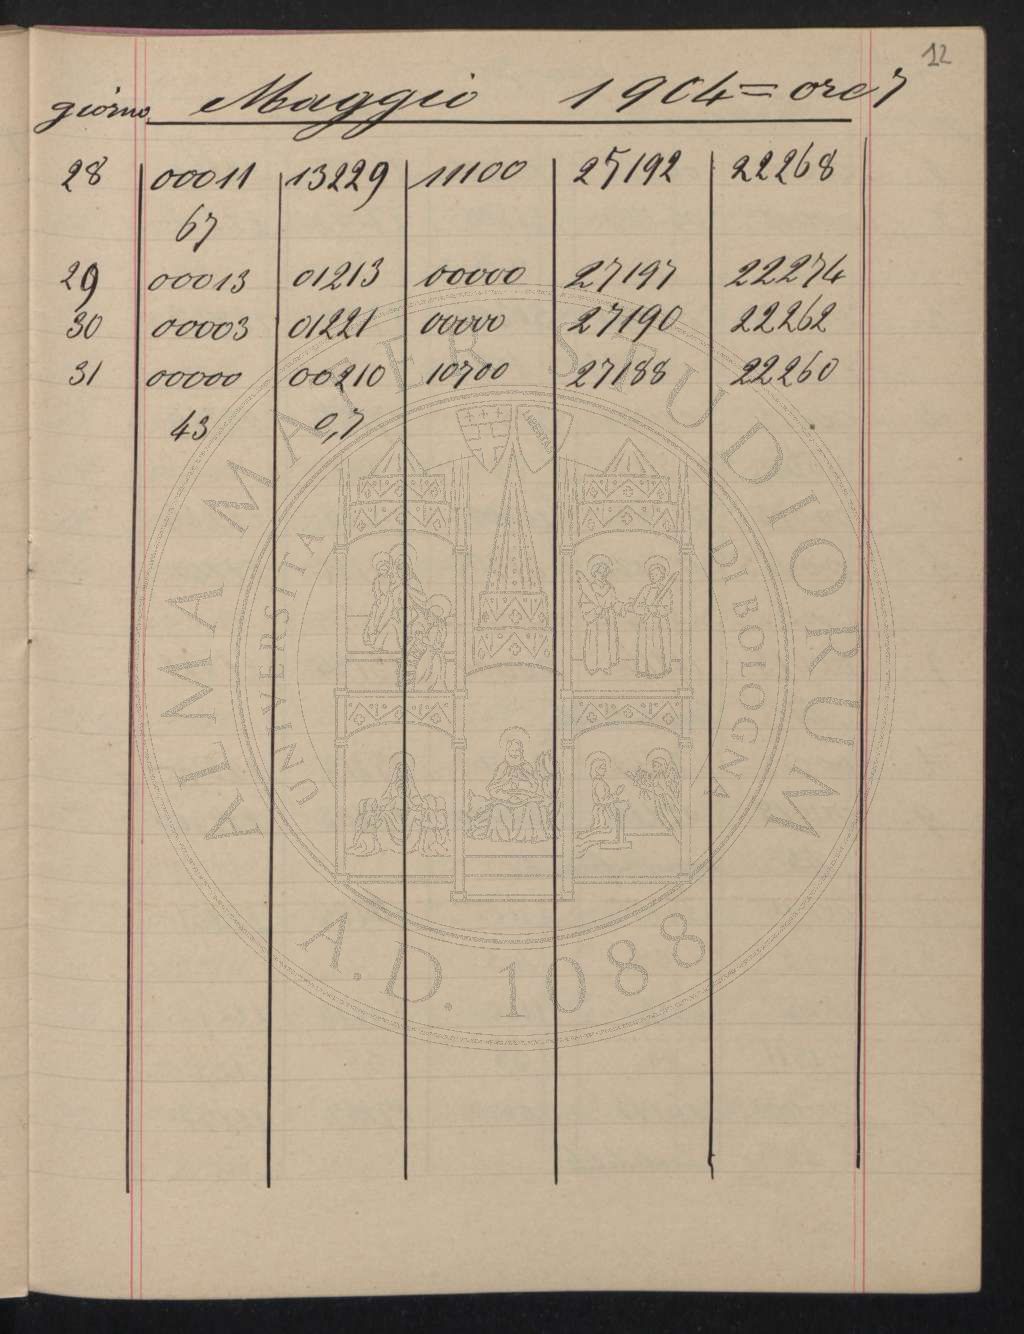 12
giorno Maggio 1904 = ore 7
28 00011 13229 11100 25192 22268
67
29 00013 01213 00000 27197 22274
30 00003 01221 00000 27190 22262
31 00000 00210 10700 27188 22260
43 0,7
ALMA MATER STUDIORUM
UNIVERSITA DI BOLOGNA
A.D. 1088